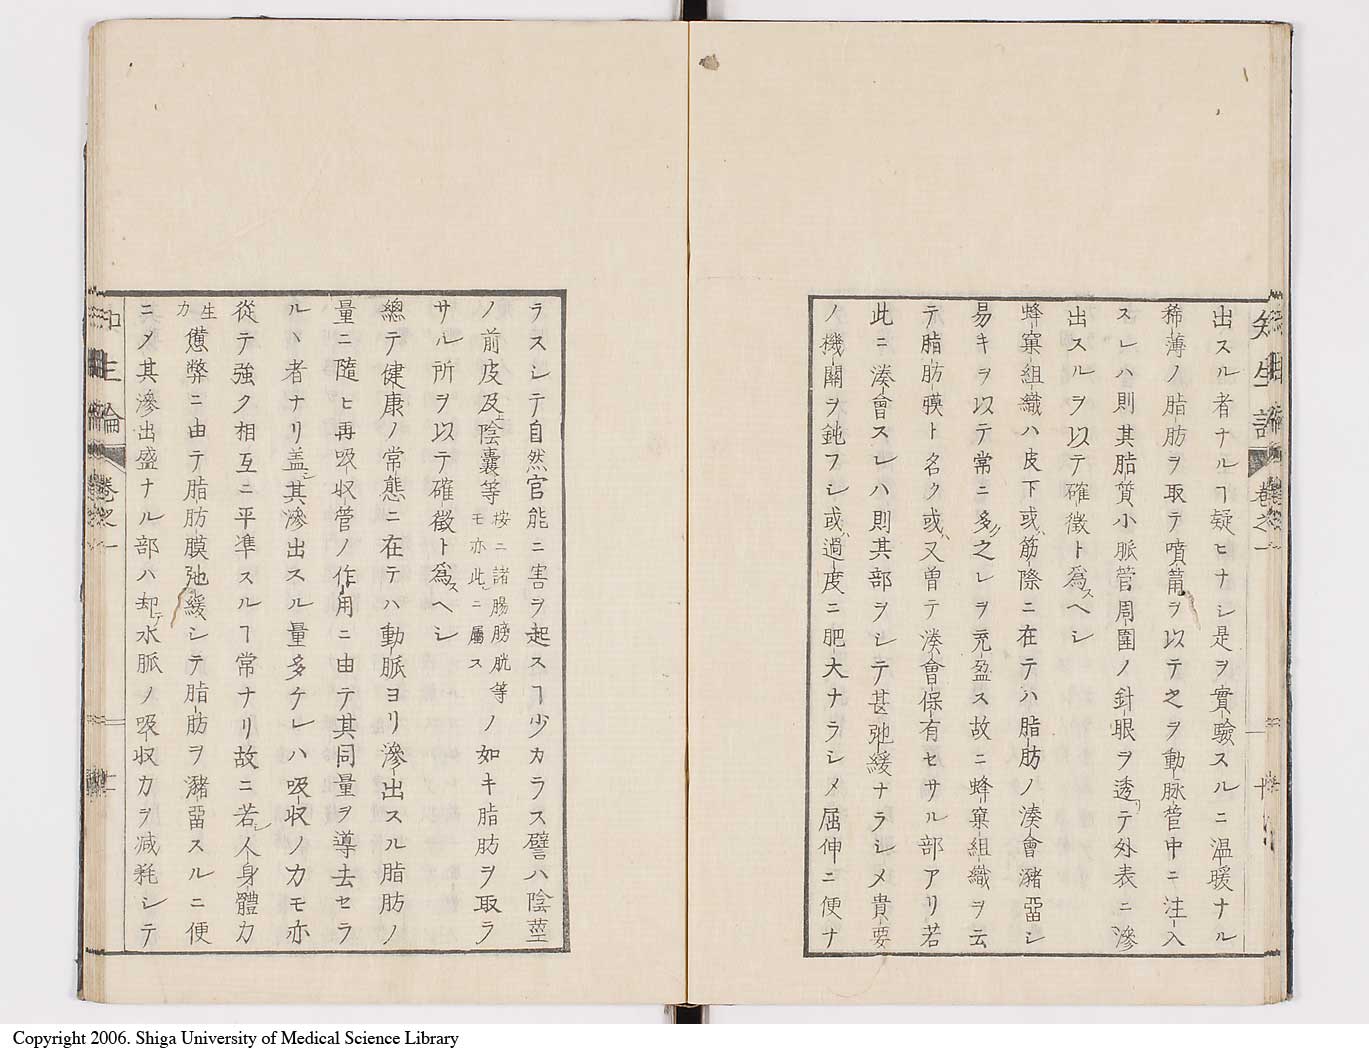 出スル者ナルヿ疑ヒナシ是ヲ實驗スルニ温暖ナル
稀薄ノ脂肪ヲ取テ噴筩ヲ以テ之ヲ動脉管中ニ注入
スレハ則其脂質小脈管周圍ノ針眼ヲ透テ外表ニ滲
出スルヲ以テ確徴ト爲スヘシ
蜂窠組織ハ皮下或ハ筋際ニ在テハ脂肪ノ湊會瀦畱シ
易キヲ以テ常ニ多ク之レヲ充盈ス故ニ蜂窠組織ヲ云
テ脂肪膜ト名ク或ハ又曽テ湊會保有セサル部アリ若
此ニ湊會スレハ則其部ヲシテ甚弛緩ナラシメ貴要
ノ機關ヲ鈍フシ或ハ過度ニ肥大ナラシメ屈伸ニ便ナ
ラスシテ自然官能ニ害ヲ起スヿ少カラス譬ハ陰莖
ノ前皮及ヒ陰嚢等按ニ諸腸膀胱等モ亦此ニ屬スノ如キ脂肪ヲ取ラ
サル所ヲ以テ確徴ト爲スヘシ
總テ健康ノ常態ニ在テハ動脈ヨリ滲出スル脂肪ノ
量ニ隨ヒ再吸収管ノ作用ニ由テ其同量ヲ導去セラ
ルヽ者ナリ蓋シ其滲出スル量多ケレハ吸収ノ力モ亦
從テ強ク相互ニ平準スルヿ常ナリ故ニ若シ人身體力
生力憊弊ニ由テ脂肪膜弛緩シテ脂肪ヲ瀦畱スルニ便
ニメ其滲出盛ナル部ハ却テ水脈ノ吸収力ヲ減耗シテ
知生論
卷之一
卷之一
Copyright 2006. Shiga University of Medical Science Library